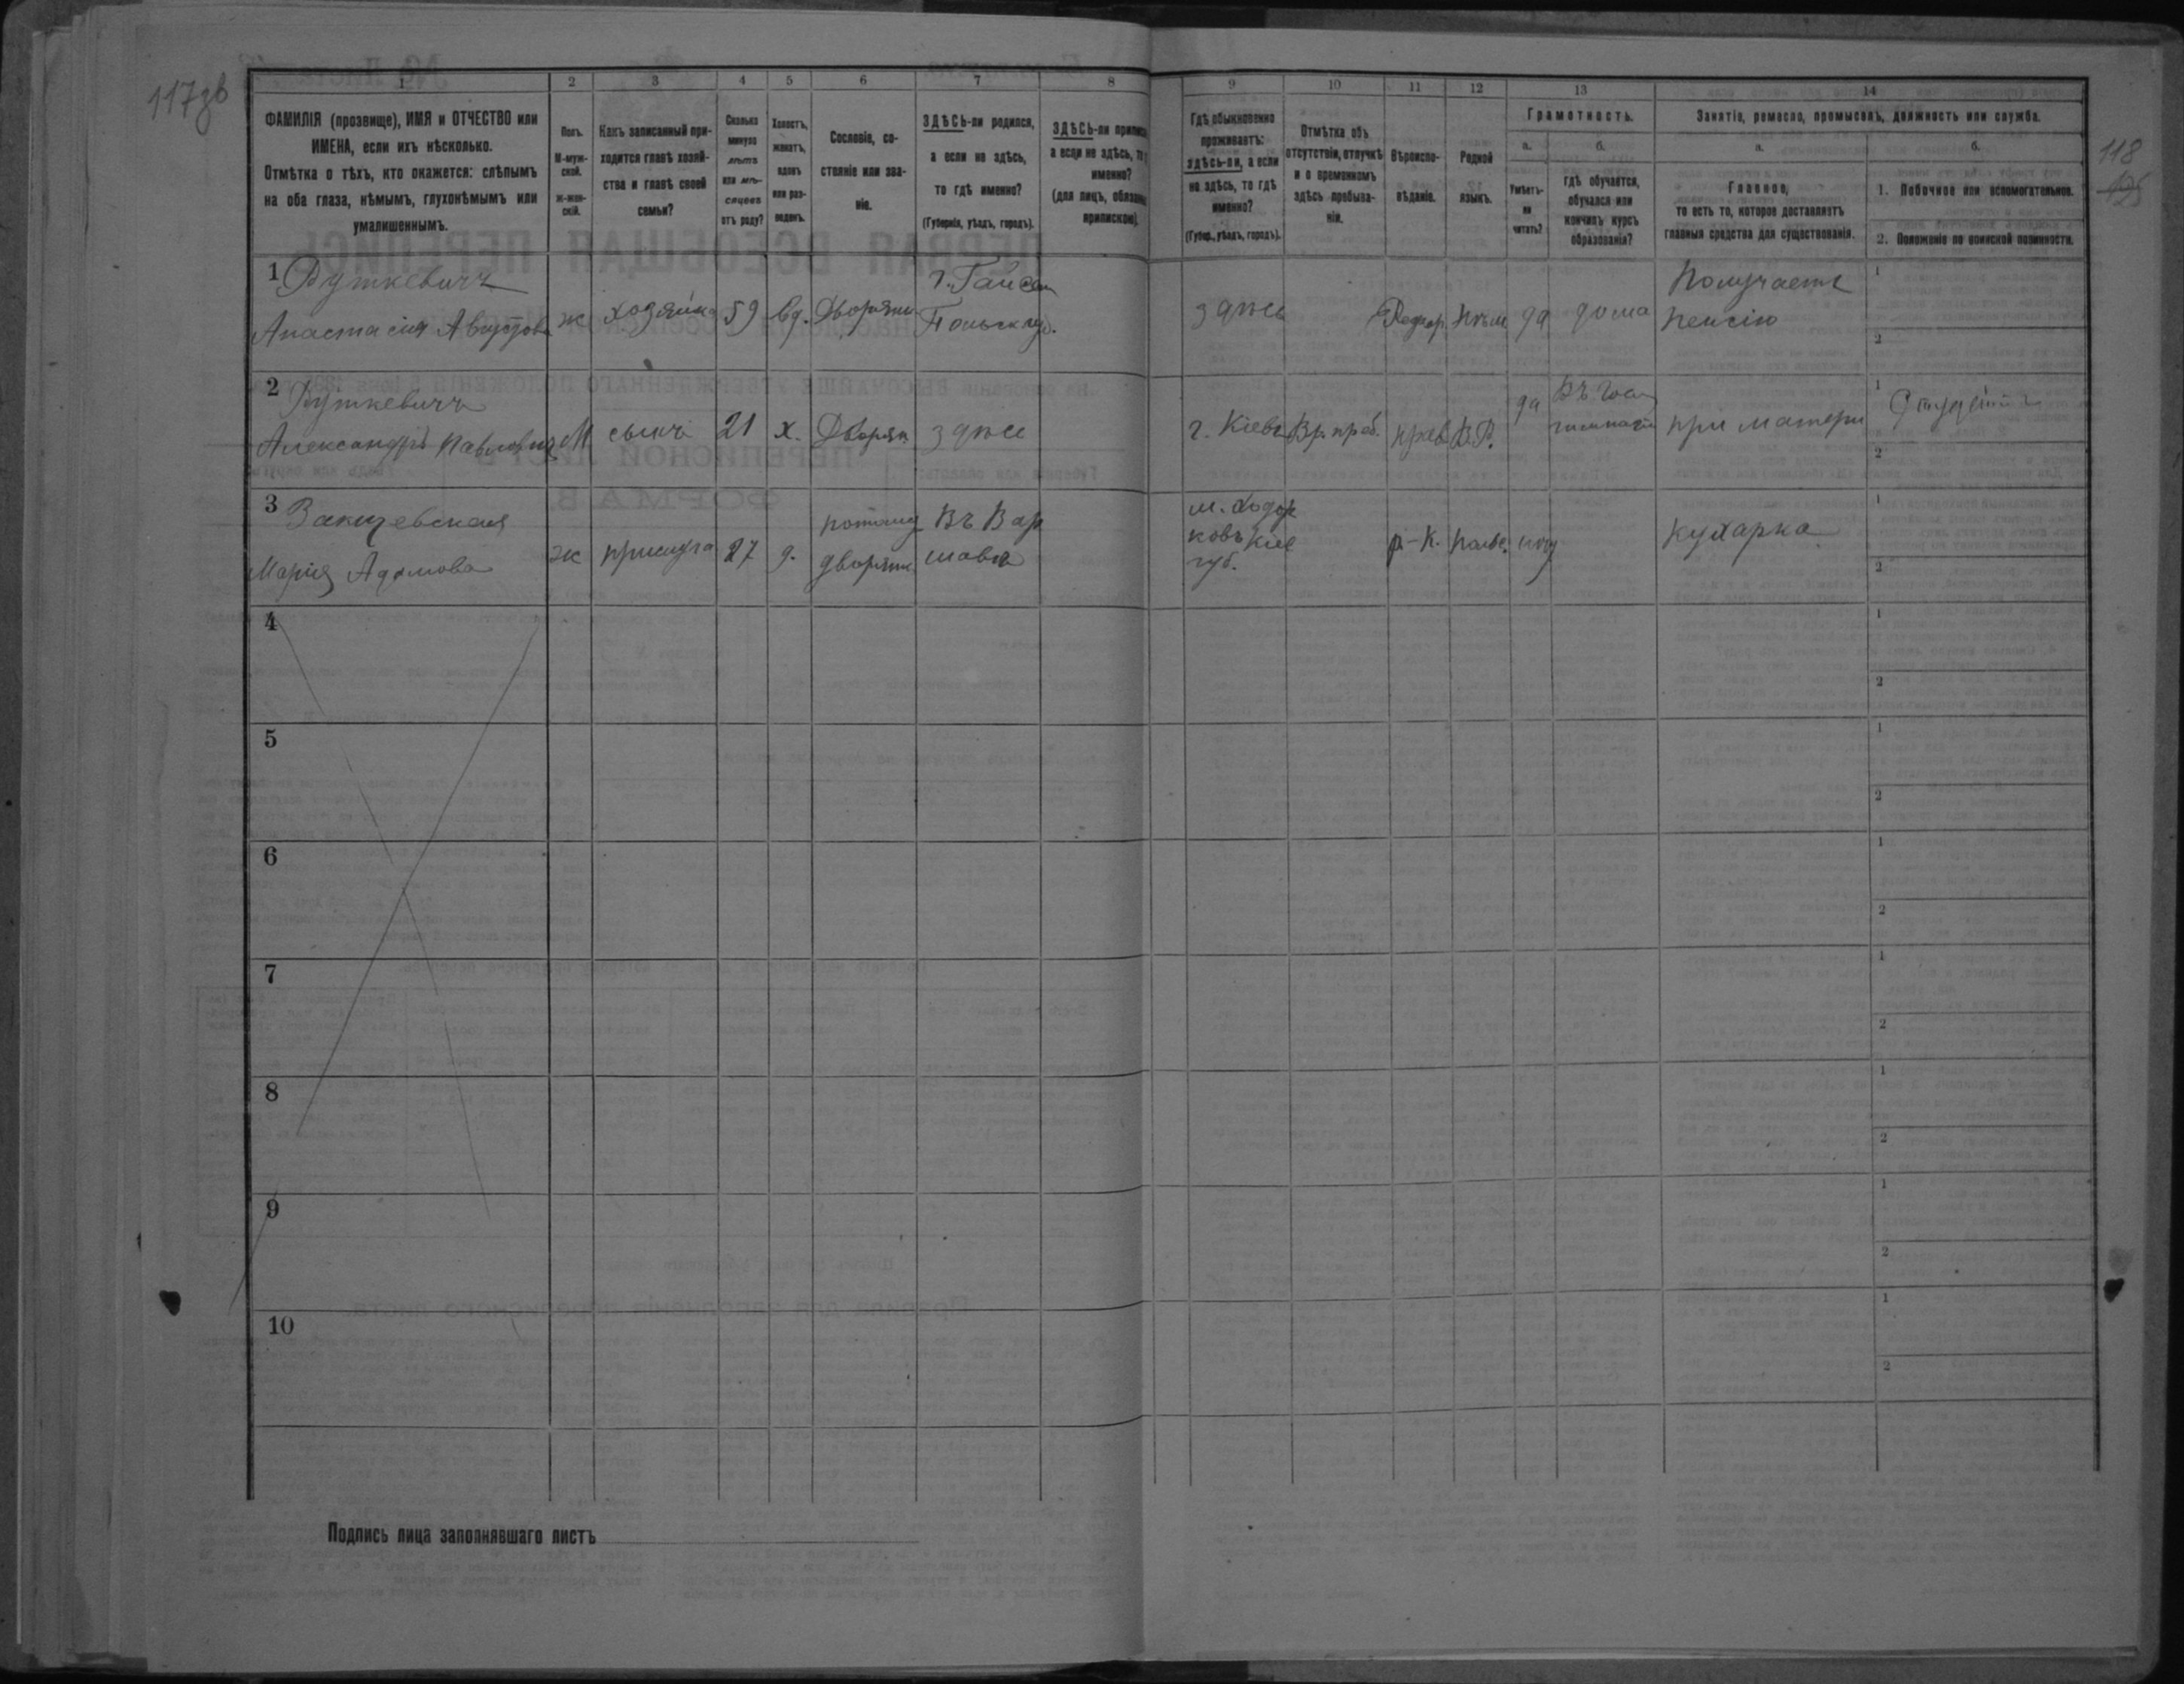 117зв
118
125
1 2 3 4 5 6 7 8 9 10 11 12 13 14
ФАМИЛІЯ (прозвище), ИМЯ и ОТЧЕСТВО или
ИМЕНА, если ихъ нѣсколько.
Отмѣтка о тѣхъ, кто окажется: слѣпымъ
на оба глаза, нѣмымъ, глухонѣмымъ или
умалишеннымъ.
Полъ.
М-муж-
ской.
ж-жен-
скій.
Какъ записанный при-
ходится главѣ хозяй-
ства и главѣ своей
семьи?
Сколько
минуло
лѣтъ
или мѣ-
сяцевъ
отъ роду?
Холостъ,
женатъ,
вдовъ
или раз-
веденъ.
Сословіе, со-
стояніе или зва-
ніе.
ЗДѢСЬ-ли родился,
а если не здѣсь,
то гдѣ именно?
(Губернія, уѣздъ, городъ).
ЗДѢСЬ-ли приписа
а если не здѣсь, то
именно?
(для лицъ, обязан
припискою)
Гдѣ обыкновенно
проживаетъ:
здѣсь-ли, а если
не здѣсь, то гдѣ
именно?
(Губер., уѣздъ, городъ).
Отмѣтка объ
отсутствіи, отлучкѣ
и о временномъ
здѣсь пребыва-
ніи.
Вѣроиспо-
вѣданіе.
Родной
языкъ.
Грамотность.
а.
Умѣетъ-
ли
читать?
б.
гдѣ обучается,
обучался или
кончилъ курсъ
образованія?
Занятіе, ремесло, промыселъ, должность или служба.
а.
Главное,
то есть то, которое доставляетъ
главныя средства для существованія.
б.
1. Побочное или вспомогательное.
2. Положеніе по воинской повинности.
1 Руткевичъ г. Гайсин Получаетъ 1
Анастасия Августова ж хозяйка 59 вд. Дворянк Подольск губ. здѣсь Реформ. нѣм да дома пенсію
2
2 Руткевичъ Въ Гос 1 Студентъ
Александръ Павловичъ М сынъ 21 х. Дворян здѣсь г. Кіевъ Вр. преб. прав В.Р. да гимназіи при матери
2
3 Закржевская потомс Въ Вар м. Ходор 1
Марія Адамова ж прислуга 27 д. дворянк шавѣ ковъ Кіев губ. р.-К. польс. нѣт кухарка
2
4 1
2
5 1
2
6 1
2
7 1
2
8 1
2
9 1
2
10 1
2
Подпись лица заполнявшаго листъ